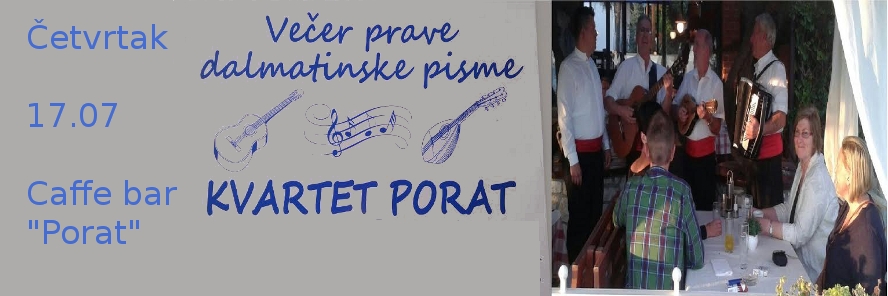 Četvrtak
17.07
Caffe bar
"Porat"
Večer prave
dalmatinske pisme
KVARTET PORAT